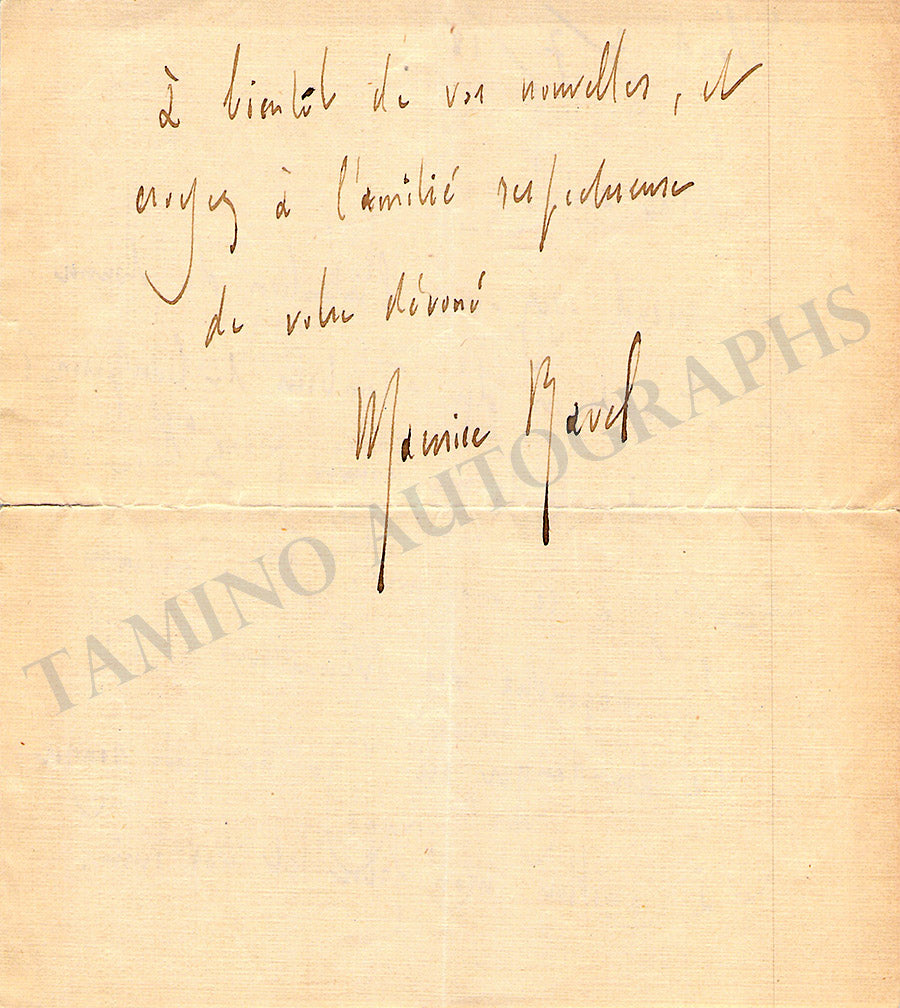 à bientôt de vos nouvelles, et
croyez à l'amitié respectueuse
de votre dévoué
Maurice Ravel
TAMINO AUTOGRAPHS